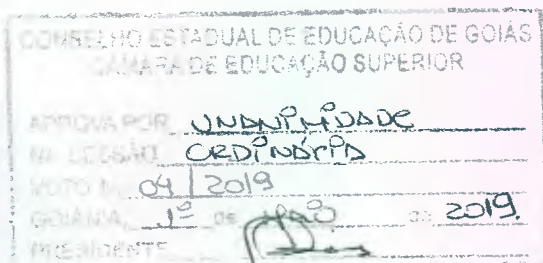 CONSELHO ESTADUAL DE EDUCAÇÃO DE GOIÁS
CÂMARA DE EDUCAÇÃO SUPERIOR
APROVA POR UNANIMIDADE
NA SESSÃO ORDINÁRIA
VOTO N. 04 / 2019
GOIÂNIA, 1º DE MAIO DE 2019.
PRESIDENTE